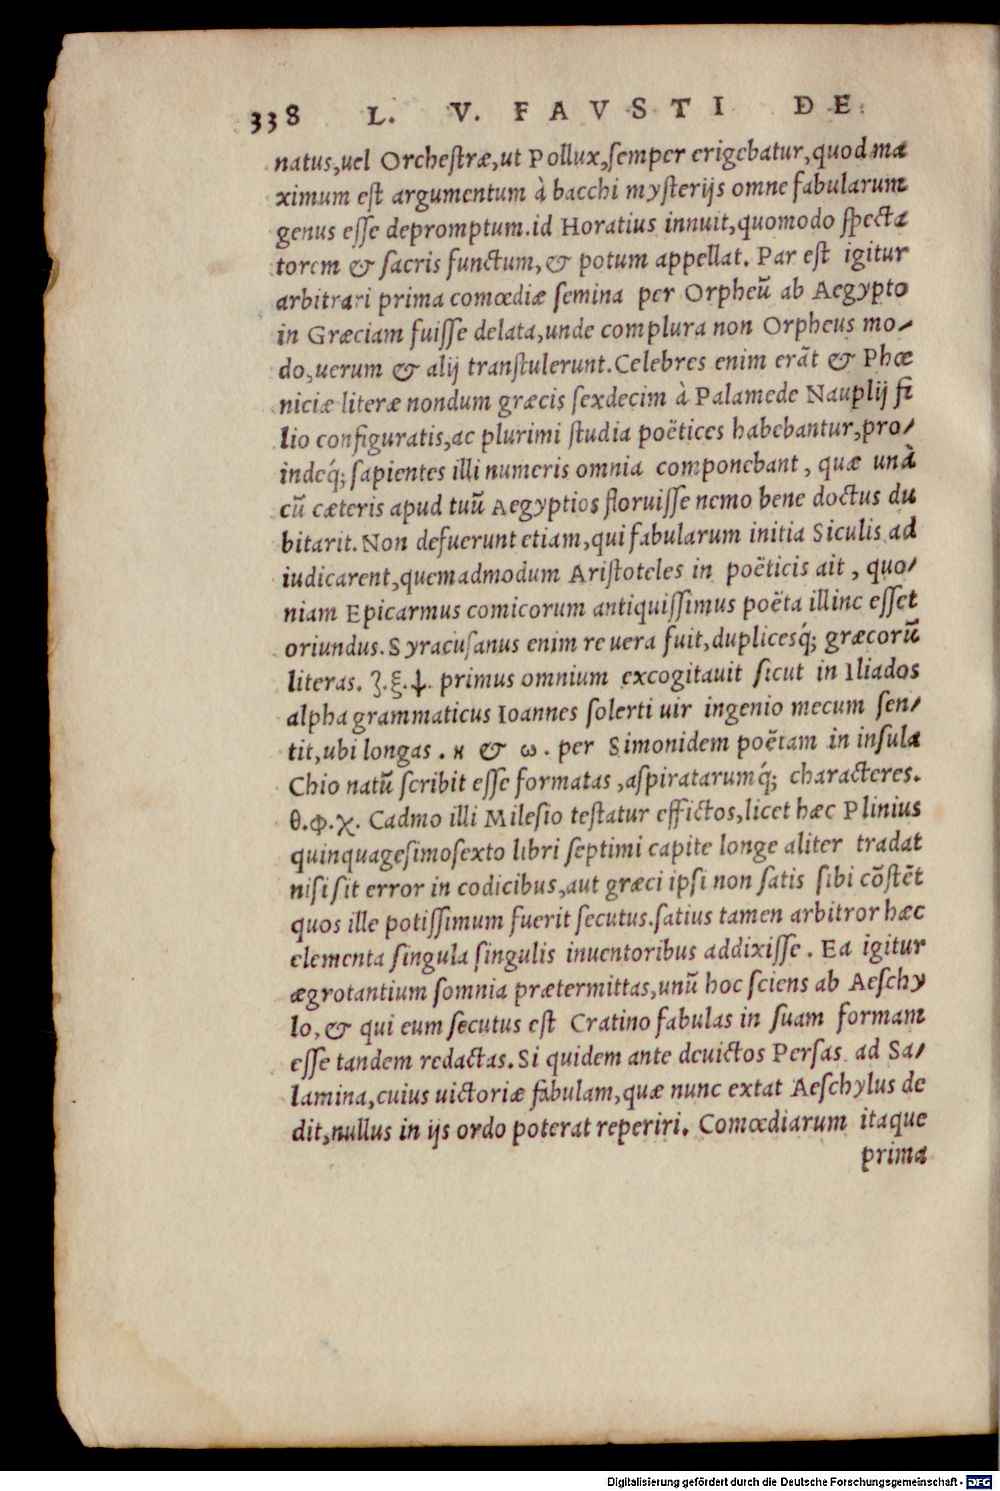 338 L. V. FAVSTI DE
natus,uel Orchestræ,ut Pollux,semper erigebatur,quod ma
ximum est argumentum à bacchi mysterijs omne fabularum
genus esse depromptum.id Horatius innuit,quomodo specta
torem & sacris functum,& potum appellat. Par est igitur
arbitrari prima comœdiæ semina per Orpheū ab Aegypto
in Græciam fuisse delata,unde complura non Orpheus mo-
do,uerum & alij transtulerunt.Celebres enim erāt & Phœ
niciæ literæ nondum græcis sexdecim à Palamede Nauplij fi
lio configuratis,ac plurimi studia poëtices habebantur,pro-
indeq́; sapientes illi numeris omnia componebant, quæ unà
cū cæteris apud tuū Aegyptios floruisse nemo bene doctus du
bitarit. Non defuerunt etiam,qui fabularum initia Siculis ad
iudicarent,quemadmodum Aristoteles in poëticis ait, quo-
niam Epicarmus comicorum antiquissimus poëta illinc esset
oriundus. Syracusanus enim re uera fuit,duplicesq́; græcorū
literas. ζ.ξ.ψ. primus omnium excogitauit sicut in Iliados
alpha grammaticus Ioannes solerti uir ingenio mecum sen-
tit,ubi longas. ϰ & ω. per Simonidem poëtam in insula
Chio natū scribit esse formatas,aspiratarumq́; characteres.
θ.φ.χ. Cadmo illi Milesio testatur effictos,licet hæc Plinius
quinquagesimosexto libri septimi capite longe aliter tradat
nisi sit error in codicibus,aut græci ipsi non satis sibi cōstēt
quos ille potissimum fuerit secutus.satius tamen arbitror hæc
elementa singula singulis inuentoribus addixisse. Ea igitur
ægrotantium somnia prætermittas,unū hoc sciens ab Aeschy
lo,& qui eum secutus est Cratino fabulas in suam formam
esse tandem redactas. Si quidem ante deuictos Persas ad Sa-
lamina,cuius uictoriæ fabulam,quæ nunc extat Aeschylus de
dit,nullus in ijs ordo poterat reperiri. Comœdiarum itaque
prima
Digitalisierung gefördert durch die Deutsche Forschungsgemeinschaft - DFG